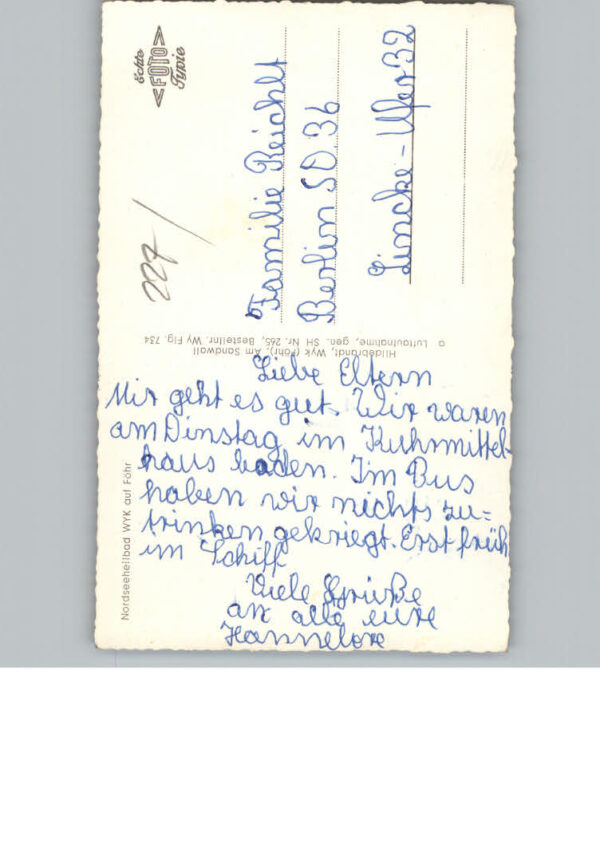 Echte
<FOTO>
Typie
227/
Familie Reichlt
Berlin SO 36
Lincke-Ufer 32
Hildebrandt, Wyk (Föhr), Am Sandwall
a Luftaufnahme, gen. SH Nr. 265, Bestellnr. Wy Flg. 734
Nordseeheilbad WYK auf Föhr
Liebe Eltern
Mir geht es gut. Wir waren
am Dinstag im Kuhrmittel-
haus baden. Im Bus
haben wir nichts zu=
trinken gekriegt. Erst früh
im Schiff
Viele Grüße
an alle eure
Hannelore